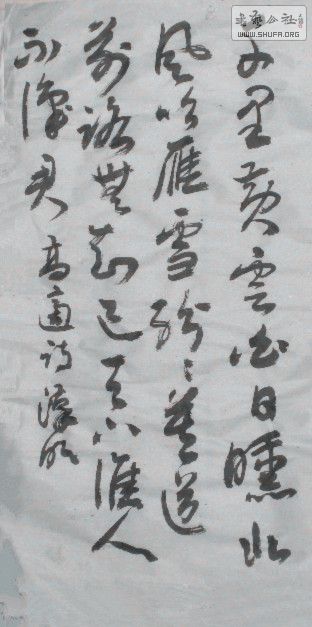 書藝公社
WWW.SHUFA.ORG
千里黄雲白日曛北
風吹雁雪紛々莫道
前路無知己天下誰人
不識君 高適詩